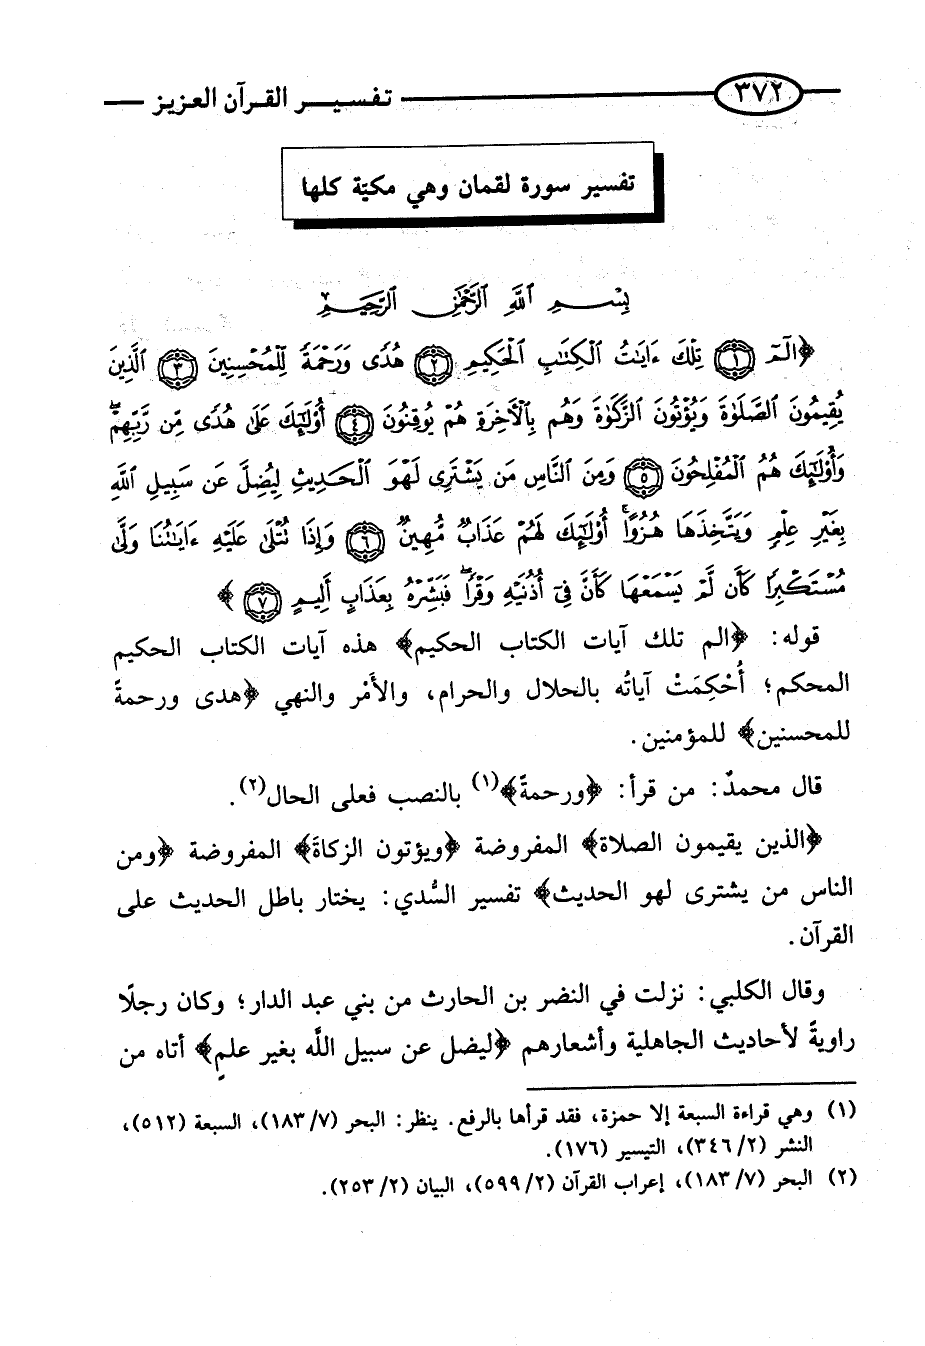 ٣٧٢ تفسير القرآن العزيز
تفسير سورة لقمان وهي مكيّة كلها
بِسْمِ ٱللَّهِ ٱلرَّحْمَٰنِ ٱلرَّحِيمِ
﴿الٓمٓ ١ تِلْكَ ءَايَٰتُ ٱلْكِتَٰبِ ٱلْحَكِيمِ ٢ هُدًى وَرَحْمَةً لِّلْمُحْسِنِينَ ٣ ٱلَّذِينَ
يُقِيمُونَ ٱلصَّلَوٰةَ وَيُؤْتُونَ ٱلزَّكَوٰةَ وَهُم بِٱلْأَخِرَةِ هُمْ يُوقِنُونَ ٤ أُوْلَٰٓئِكَ عَلَىٰ هُدًى مِّن رَّبِّهِمْۖ
وَأُوْلَٰٓئِكَ هُمُ ٱلْمُفْلِحُونَ ٥ وَمِنَ ٱلنَّاسِ مَن يَشْتَرِى لَهْوَ ٱلْحَدِيثِ لِيُضِلَّ عَن سَبِيلِ ٱللَّهِ
بِغَيْرِ عِلْمٍ وَيَتَّخِذَهَا هُزُوًاۚ أُوْلَٰٓئِكَ لَهُمْ عَذَابٌ مُّهِينٌ ٦ وَإِذَا تُتْلَىٰ عَلَيْهِ ءَايَٰتُنَا وَلَّىٰ
مُسْتَكْبِرًا كَأَن لَّمْ يَسْمَعْهَا كَأَنَّ فِىٓ أُذُنَيْهِ وَقْرًاۖ فَبَشِّرْهُ بِعَذَابٍ أَلِيمٍ ٧﴾
قوله: ﴿الم تلك آيات الكتاب الحكيم﴾ هذه آيات الكتاب الحكيم
المحكم؛ أُحْكِمَتْ آياتُه بالحلال والحرام، والأَمْر والنهي ﴿هدى ورحمةً
للمحسنين﴾ للمؤمنين.
قال محمدٌ: من قرأ: ﴿ورحمةً﴾(١) بالنصب فعلى الحال(٢).
﴿الذين يقيمون الصلاة﴾ المفروضة ﴿ويؤتون الزكاةَ﴾ المفروضة ﴿ومن
الناس من يشترى لهو الحديث﴾ تفسير السُّدي: يختار باطل الحديث على
القرآن.
وقال الكلبي: نزلت في النضر بن الحارث من بني عبد الدار؛ وكان رجلًا
راويةً لأحاديث الجاهلية وأشعارهم ﴿ليضل عن سبيل اللَّه بغير علمٍ﴾ أتاه من
(١) وهي قراءة السبعة إلا حمزة، فقد قرأها بالرفع. ينظر: البحر (٧/١٨٣)، السبعة (٥١٢)،
النشر (٢/٣٤٦)، التيسير (١٧٦).
(٢) البحر (٧/١٨٣)، إعراب القرآن (٢/٥٩٩)، البيان (٢/٢٥٣).